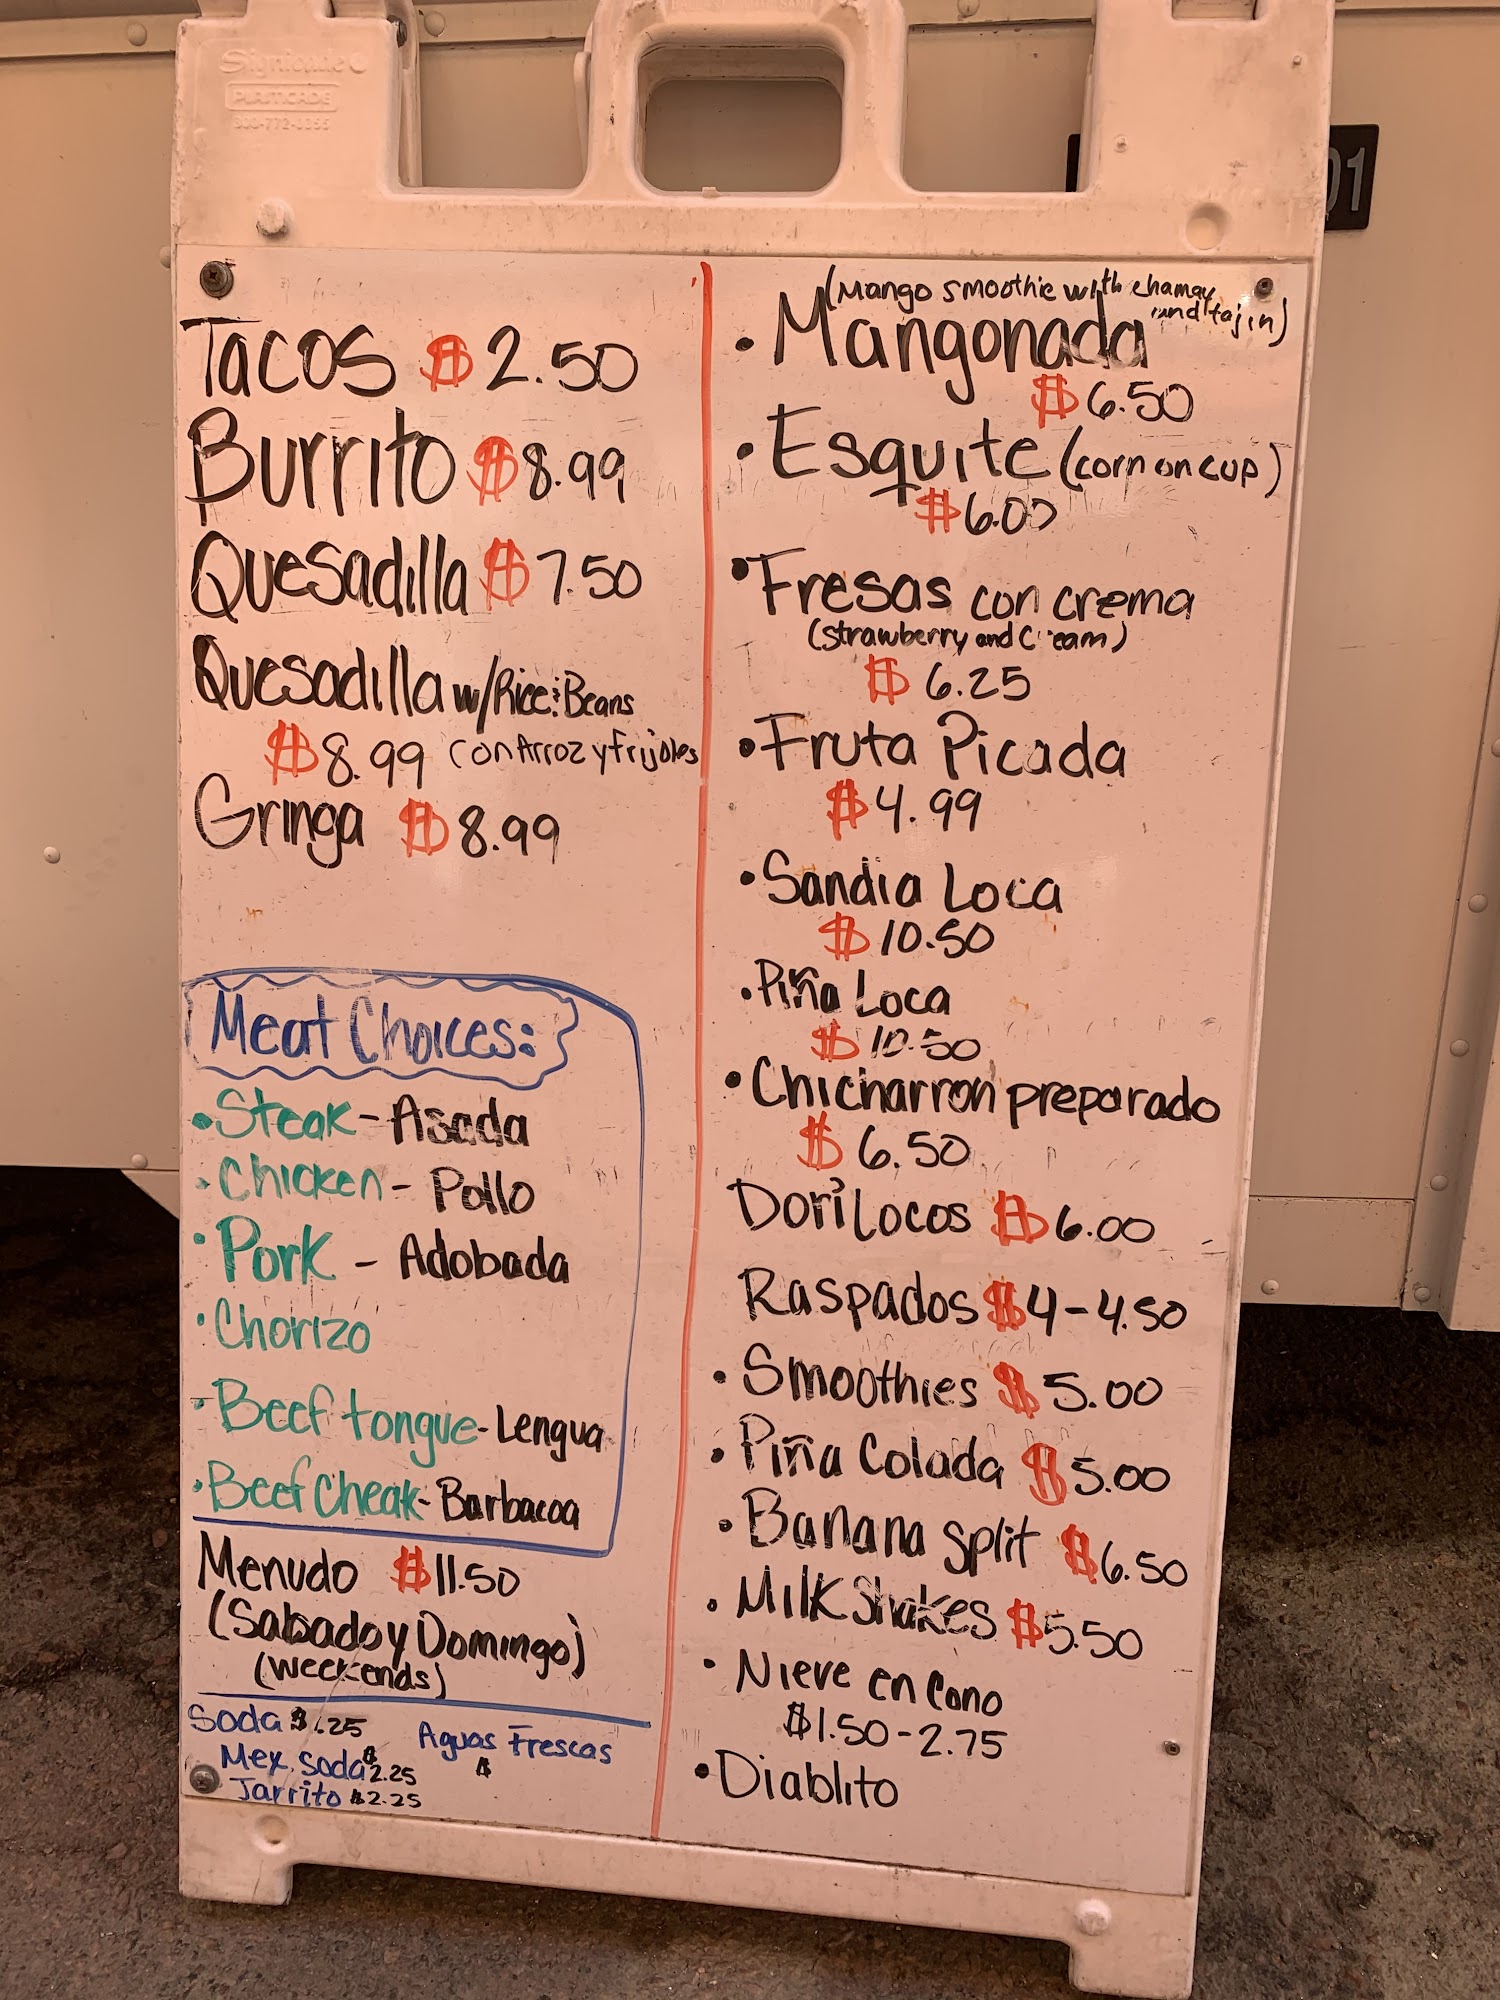 Signicade
PLASTICADE
800-772-0355
01
Tacos $2.50
Burrito $8.99
Quesadilla $7.50
Quesadilla w/Rice & Beans
$8.99 con Arroz y frijoles
Gringa $8.99
Meat Choices:
• Steak - Asada
• Chicken - Pollo
• Pork - Adobada
• Chorizo
• Beef tongue - Lengua
• Beef Cheak - Barbacoa
Menudo $11.50
(Sabado y Domingo)
(weekends)
Soda $1.25
Mex. Soda $2.25
Jarrito $2.25
Aguas Frescas
$
(Mango smoothie with chamay
and tajin)
• Mangonada
$6.50
• Esquite (corn on cup)
$6.00
• Fresas con crema
(strawberry and Cream)
$6.25
• Fruta Picada
$4.99
• Sandia Loca
$10.50
• Piña Loca
$10.50
• Chicharron preparado
$6.50
DoriLocos $6.00
Raspados $4-4.50
• Smoothies $5.00
• Piña Colada $5.00
• Banana Split $6.50
• Milk Shakes $5.50
• Nieve en Cono
$1.50-2.75
• Diablito